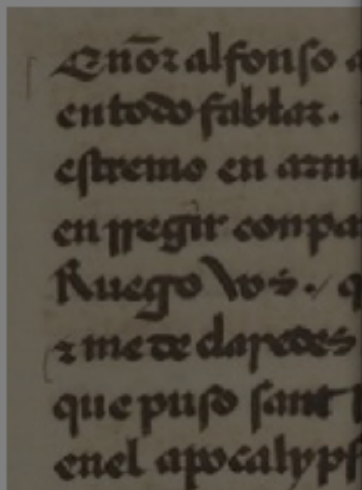 Señor alfonso a
en todo fablar.
estremo en arm
en rregir conpa
Ruego vos. q
& me declaredes
que puso sant
enel apocalyps